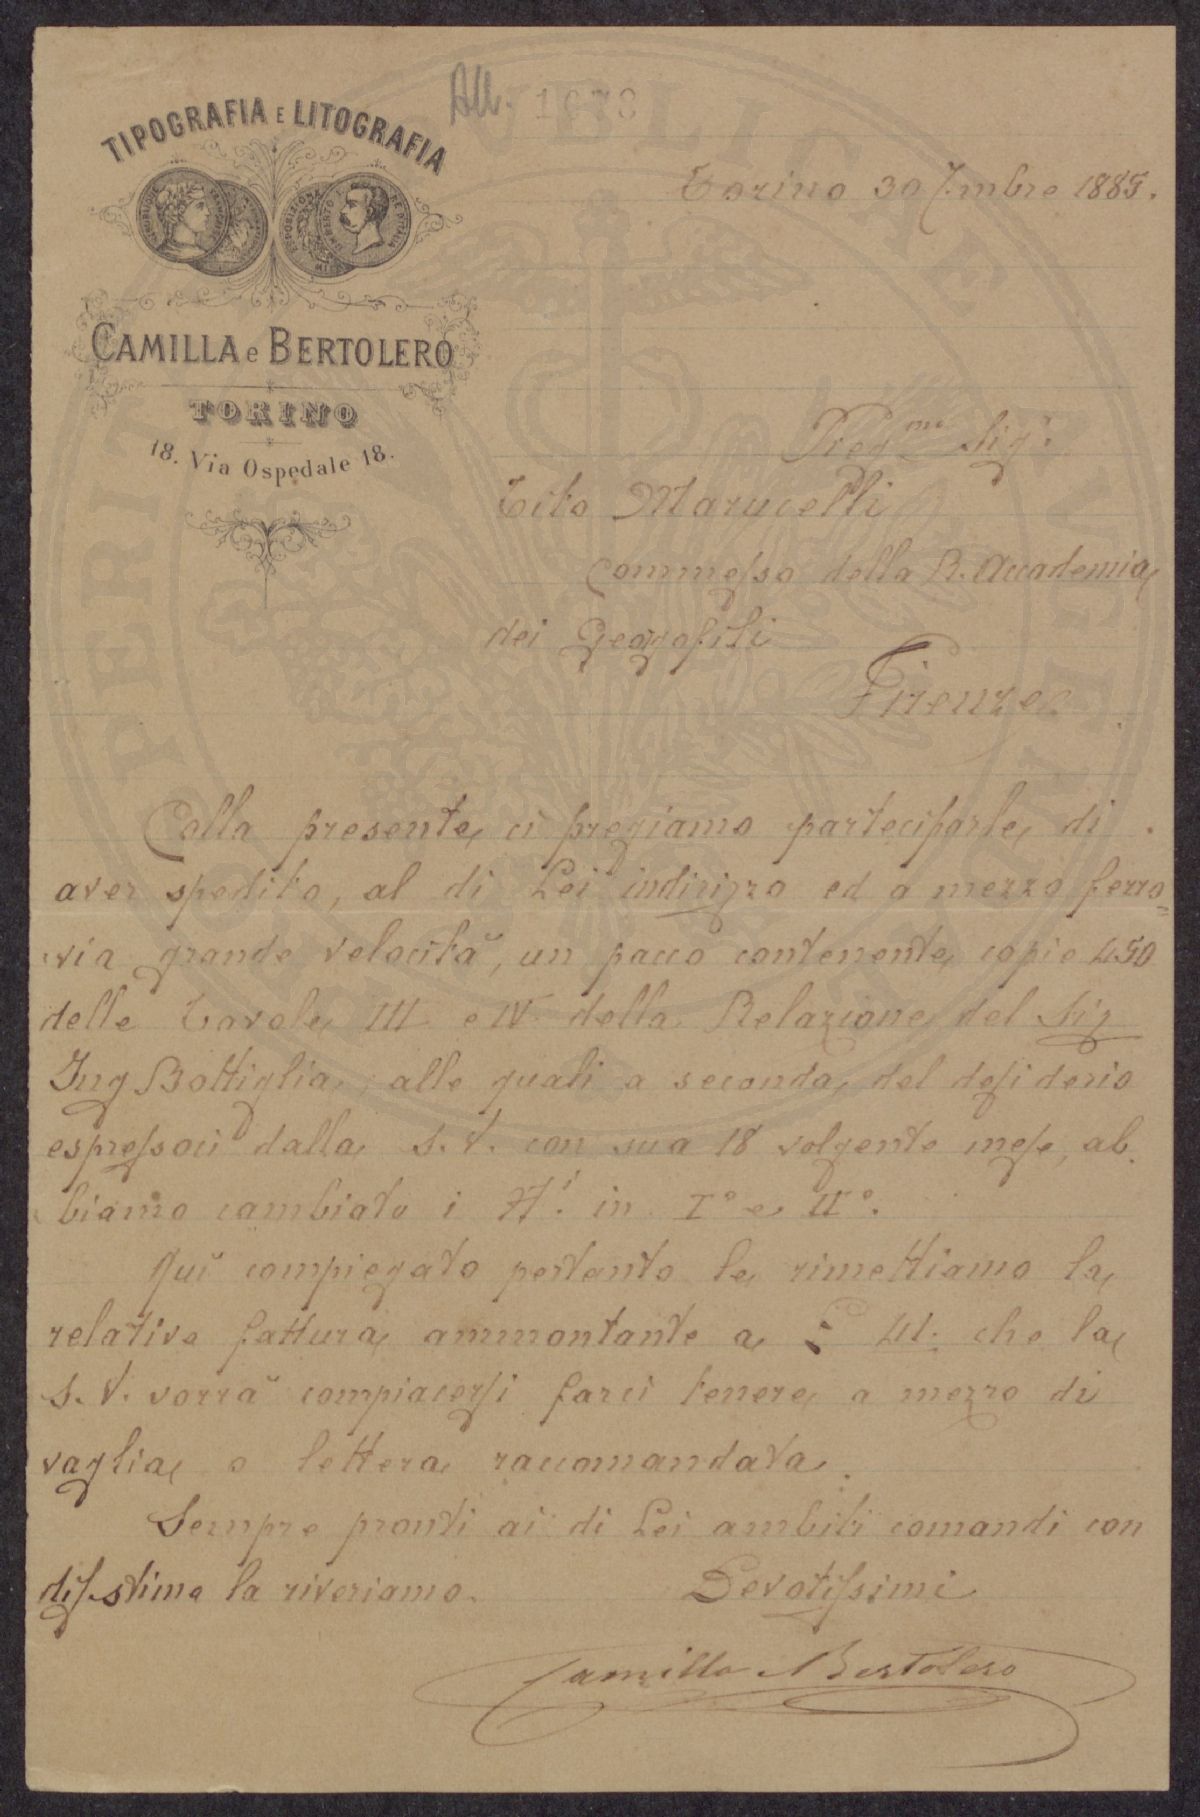 All. 1078
TIPOGRAFIA E LITOGRAFIA
CAMILLA e BERTOLERO
TORINO
18. Via Ospedale 18.
Torino 30 7mbre 1885.
Preg.mo Sig.r
Tito Marucelli
Commesso della R. Accademia
dei Georgofili
Firenze
Colla presente ci pregiamo parteciparle di
aver spedito, al di Lei indirizzo ed a mezzo ferro=
via grande velocità, un pacco contenente copie 450
delle Tavole III e IV della Relazione del Sig
Ing Bottiglia, alle quali a seconda del desiderio
espressoci dalla S.V. con sua 18 volgente mese, ab
biamo cambiato i N.i in I° e II°.
Qui compiegato pertanto le rimettiamo la
relativa fattura ammontante a £ 41. che la
S.V. vorrà compiacersi farci tenere a mezzo di
vaglia o lettera raccomandata.
Sempre pronti ai di Lei ambiti comandi con
dis.stima la riveriamo.
Devotissimi
Camilla Bertolero